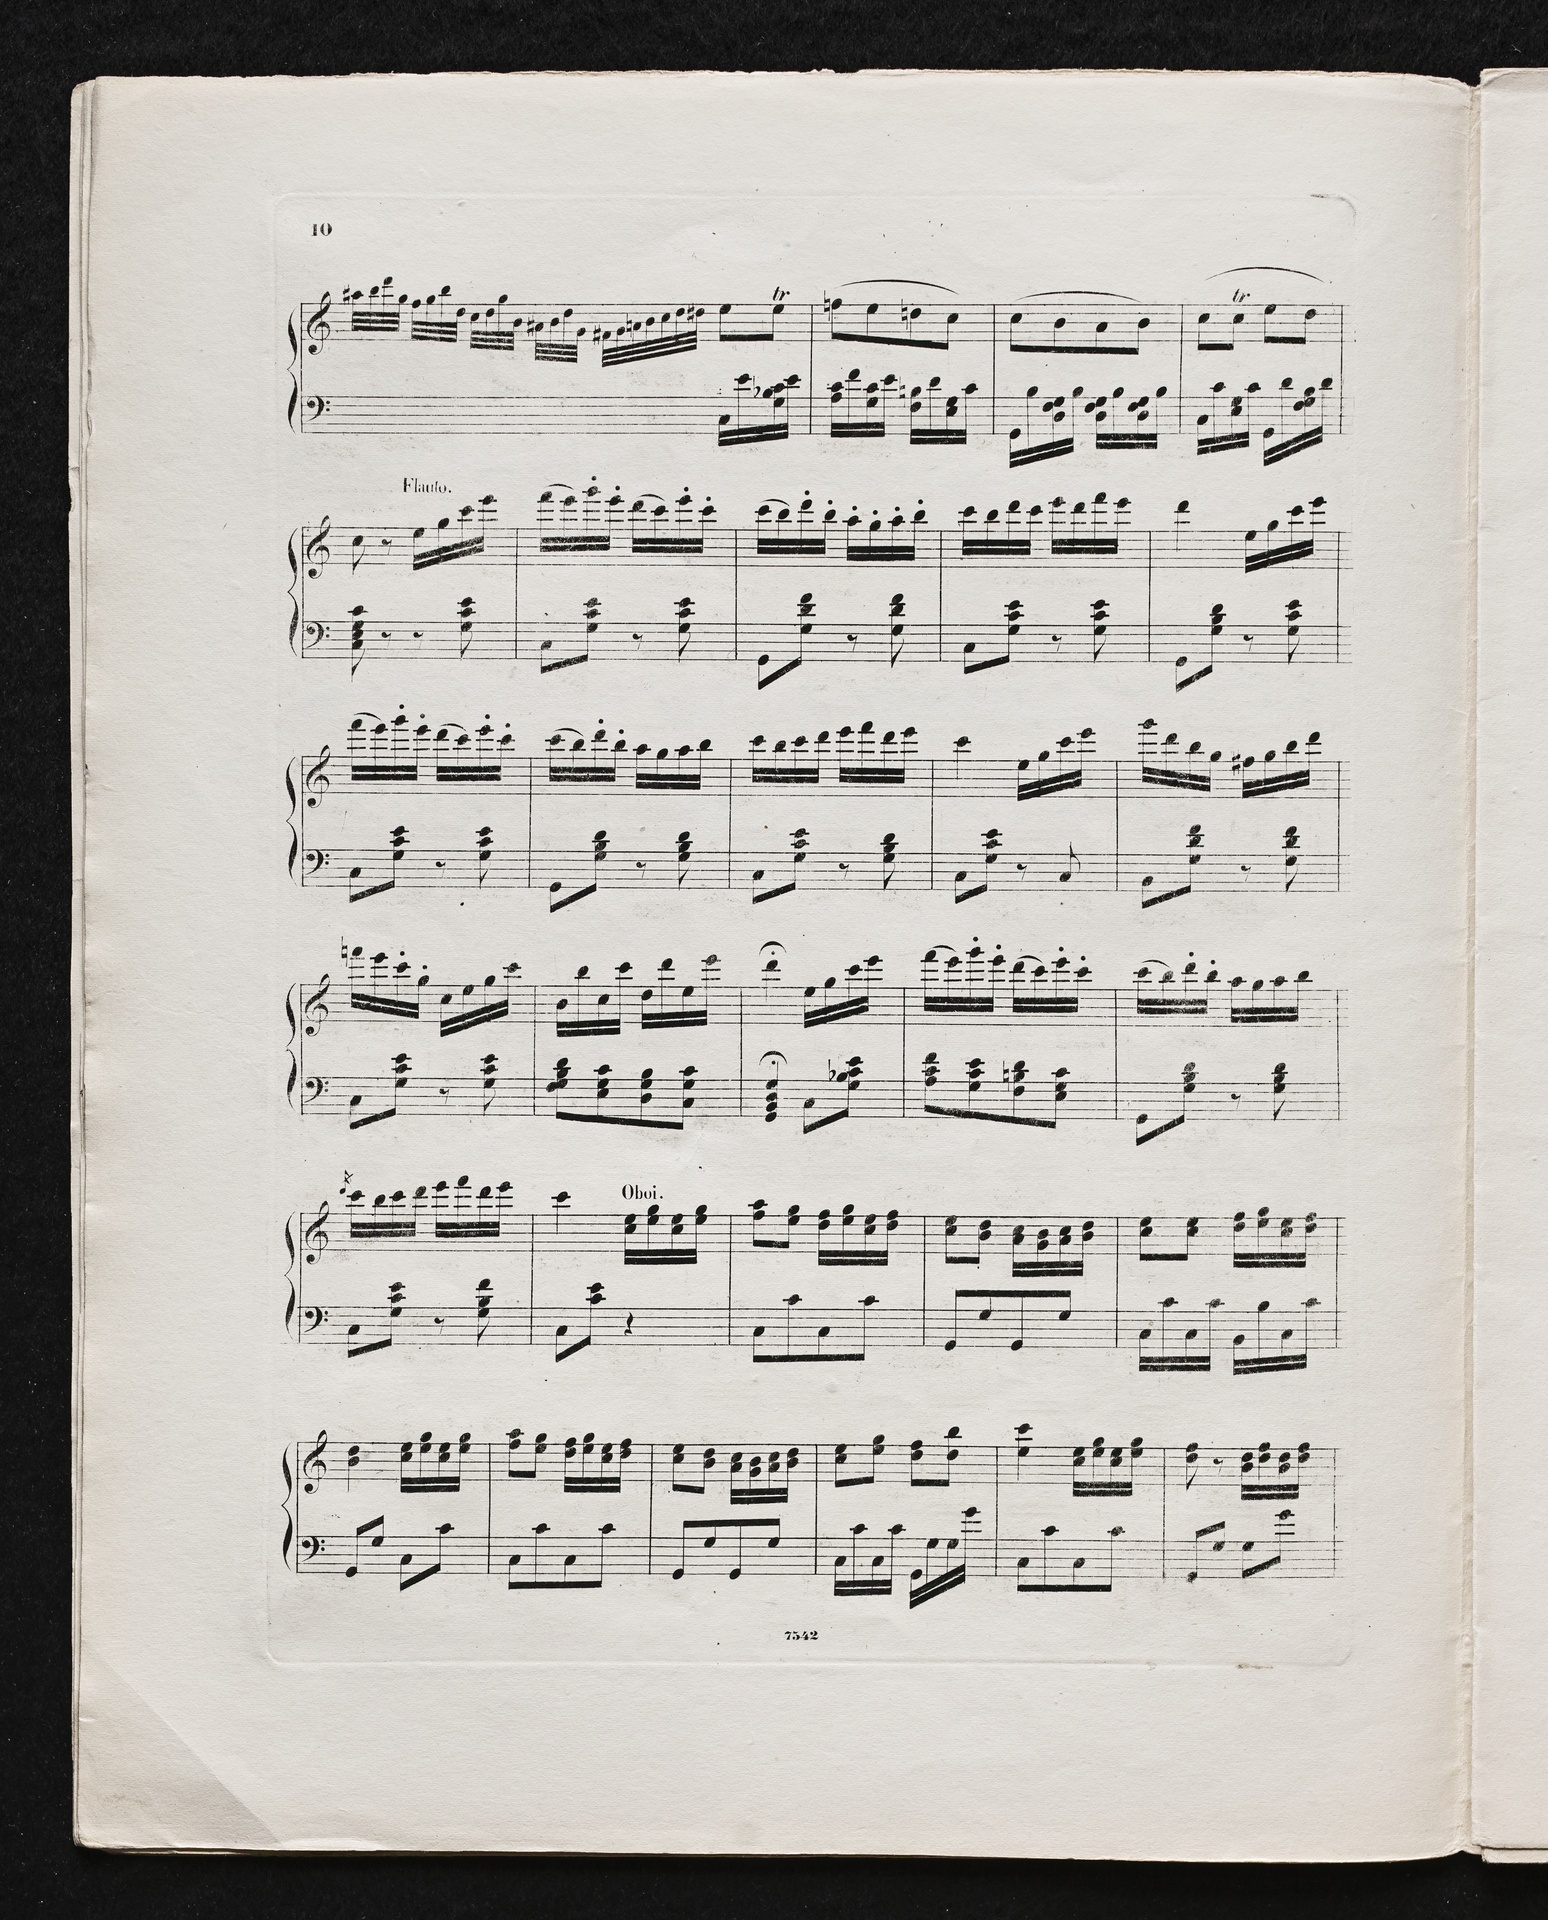 10
tr
tr
Flauto.
Oboi.
7542